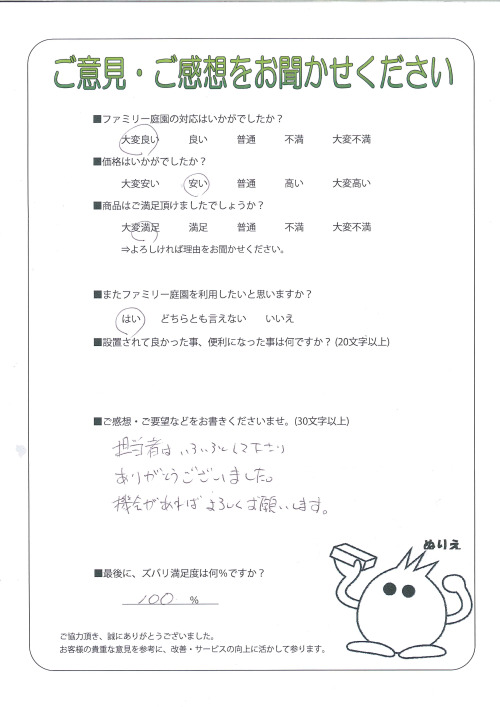 ご意見・ご感想をお聞かせください
■ファミリー庭園の対応はいかがでしたか？
大変良い 良い 普通 不満 大変不満
■価格はいかがでしたか？
大変安い 安い 普通 高い 大変高い
■商品はご満足頂けましたでしょうか？
大変満足 満足 普通 不満 大変不満
⇒よろしければ理由をお聞かせください。
■またファミリー庭園を利用したいと思いますか？
はい どちらとも言えない いいえ
■設置されて良かった事、便利になった事は何ですか？(20文字以上)
■ご感想・ご要望などをお書きくださいませ。(30文字以上)
担当者はいろいろとして下さり
ありがとうございました。
機会があればよろしくお願いします。
ぬりえ
■最後に、ズバリ満足度は何％ですか？
100 ％
ご協力頂き、誠にありがとうございました。
お客様の貴重な意見を参考に、改善・サービスの向上に活かして参ります。